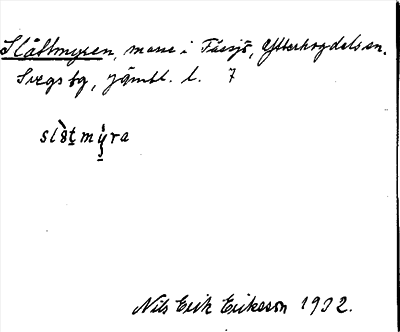 Slåttmyren, mosse i Fåssjö, Ytterhogdals sn.
Svegs tg, Jämtl. l. 7
slåtmyra
Nils Erik Eriksson 1932.